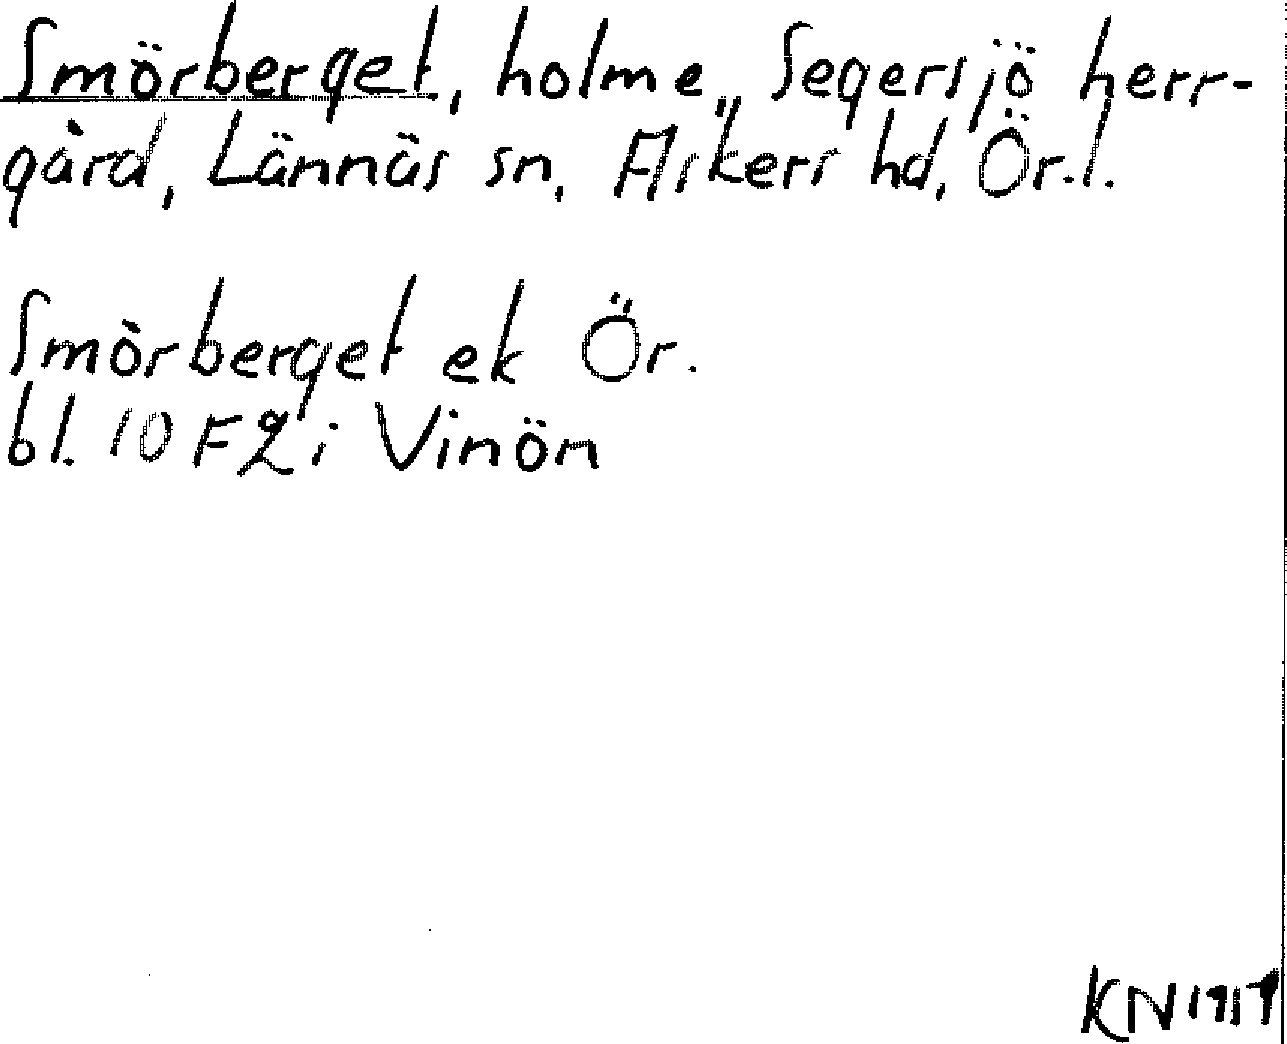 Smörberget, holme, Segersjö herr-
gård, Lännäs sn, Askers hd, Ör.l.
Smörberget ek Ör.
bl. 10 F 2 i Vinön
KN